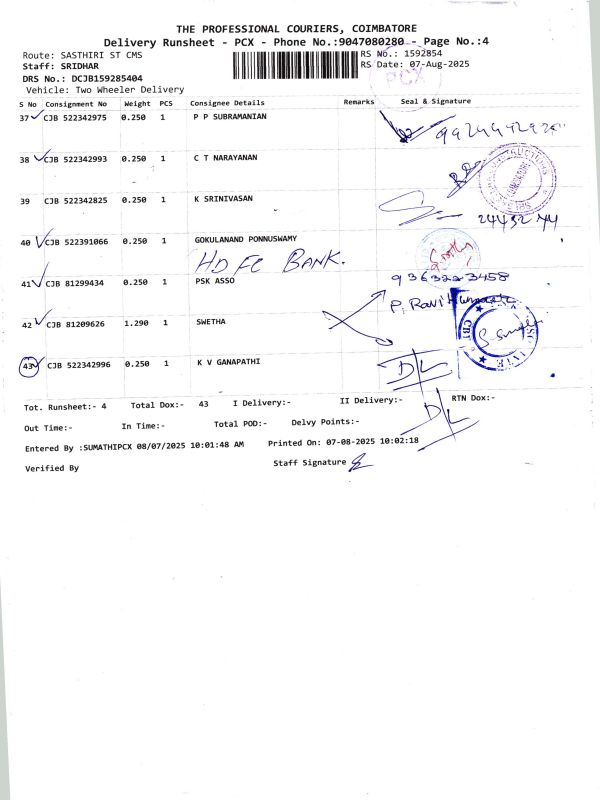 THE PROFESSIONAL COURIERS, COIMBATORE
Delivery Runsheet - PCX - Phone No.:9047080280 - Page No.:4
Route: SASTHIRI ST CMS
RS No.: 1592854
Staff: SRIDHAR
RS Date: 07-Aug-2025
PCX
DRS No.: DCJB159285404
Vehicle: Two Wheeler Delivery
S No Consignment No Weight PCS Consignee Details Remarks Seal & Signature
37 CJB 522342975 0.250 1 P P SUBRAMANIAN
38 CJB 522342993 0.250 1 C T NARAYANAN
39 CJB 522342825 0.250 1 K SRINIVASAN
40 CJB 522391066 0.250 1 GOKULANAND PONNUSWAMY
HDFC BANK.
41 CJB 81299434 0.250 1 PSK ASSO 9363223458
42 CJB 81209626 1.290 1 SWETHA
43 CJB 522342996 0.250 1 K V GANAPATHI D/L
D/L
Tot. Runsheet:- 4 Total Dox:- 43 I Delivery:- II Delivery:- RTN Dox:-
Out Time:- In Time:- Total POD:- Delvy Points:-
Entered By :SUMATHIPCX 08/07/2025 10:01:48 AM Printed On: 07-08-2025 10:02:18
Verified By Staff Signature